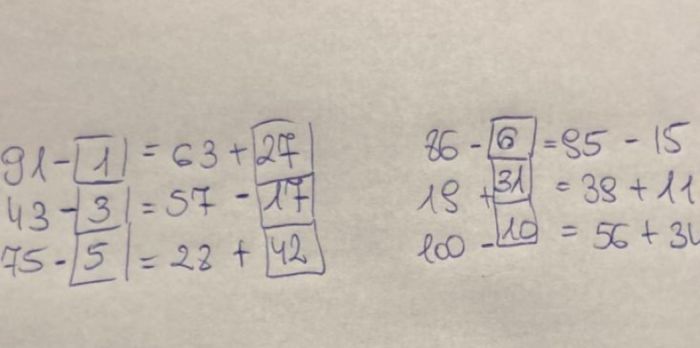 91 - 1 = 63 + 27
43 - 3 = 57 - 17
75 - 5 = 28 + 42
86 - 6 = 95 - 15
19 + 31 = 39 + 11
100 - 10 = 56 + 34